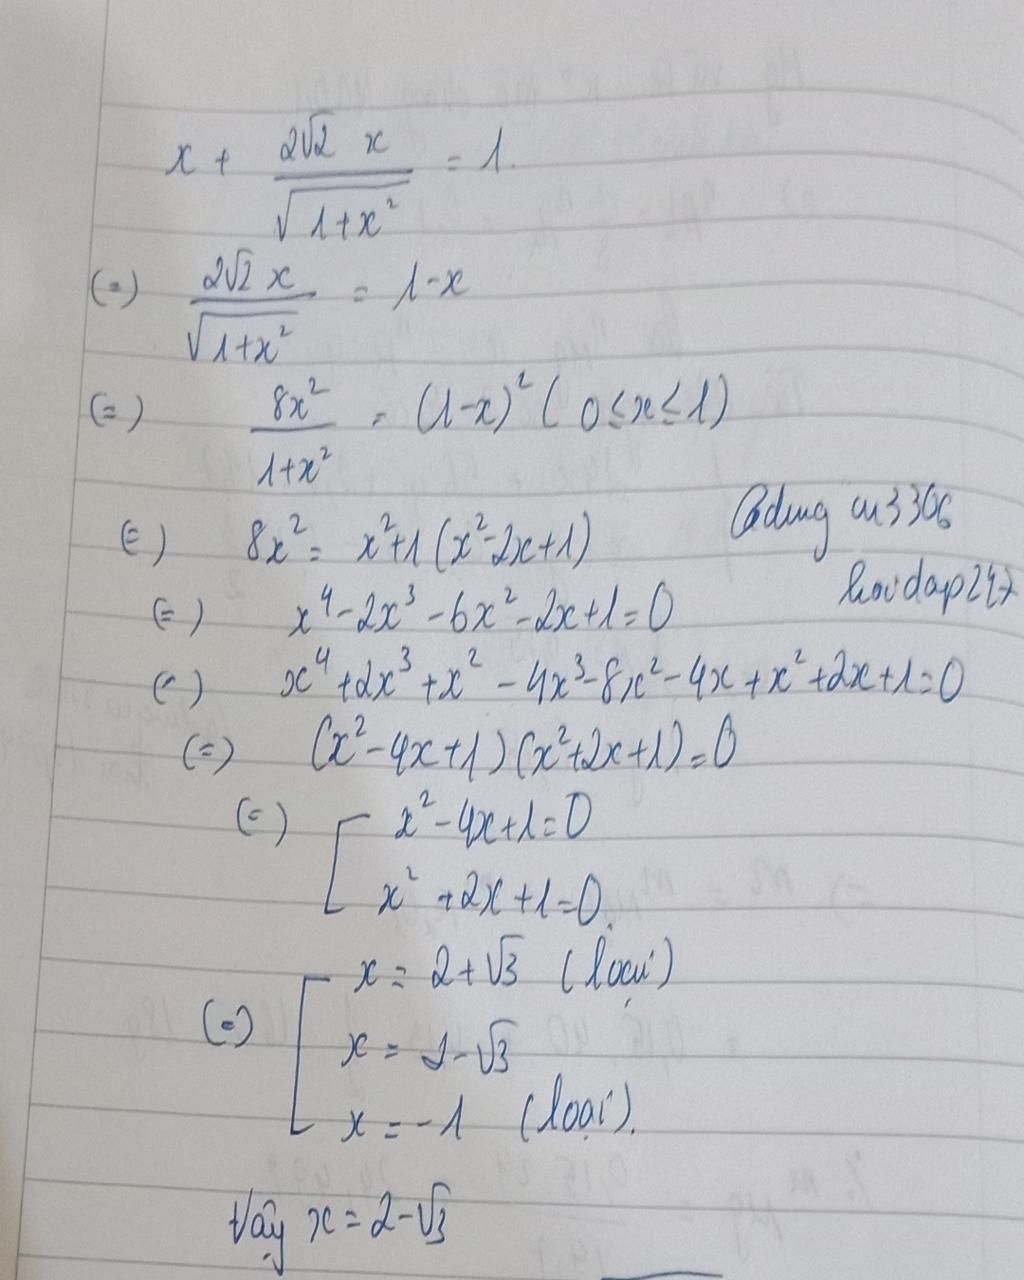 x + \frac{2\sqrt{2} x}{\sqrt{1+x^2}} = 1.
(=) \frac{2\sqrt{2} x}{\sqrt{1+x^2}} = 1-x
(=) \frac{8x^2}{1+x^2} = (1-x)^2 ( 0 ≤ x ≤ 1)
(=) 8x^2 = x^2+1 (x^2-2x+1)
cu3306
(=) x^4 - 2x^3 - 6x^2 - 2x + 1 = 0
hoidap247
(=) x^4 + 2x^3 + x^2 - 4x^3 - 8x^2 - 4x + x^2 + 2x + 1 = 0
(=) (x^2 - 4x + 1)(x^2 + 2x + 1) = 0
(=) [ x^2 - 4x + 1 = 0
x^2 + 2x + 1 = 0.
(=) [ x = 2 + \sqrt{3} (loại)
x = 2 - \sqrt{3}
x = -1 (loại).
Vậy x = 2 - \sqrt{3}